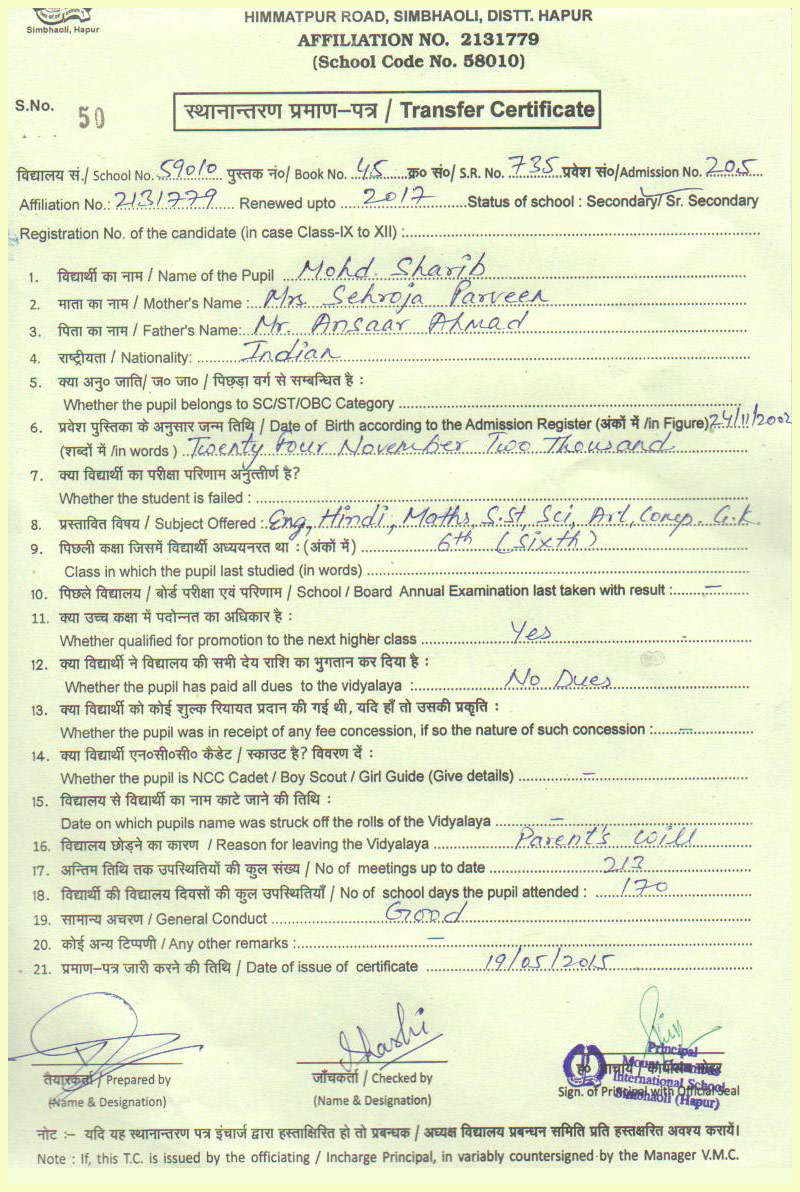 Simbhaoli, Hapur
HIMMATPUR ROAD, SIMBHAOLI, DISTT. HAPUR
AFFILIATION NO. 2131779
(School Code No. 58010)
S.No. 50
स्थानान्तरण प्रमाण–पत्र / Transfer Certificate
विद्यालय सं./ School No. 59010 पुस्तक नं०/ Book No. 45 क्र० सं०/ S.R. No. 735 प्रवेश सं०/Admission No. 205
Affiliation No.: 2131779 Renewed upto 2017 Status of school : Secondary/ Sr. Secondary
Registration No. of the candidate (in case Class-IX to XII) :
1. विद्यार्थी का नाम / Name of the Pupil Mohd. Sharib
2. माता का नाम / Mother's Name : Mrs Sehroja Parveen
3. पिता का नाम / Father's Name: Mr. Ansaar Ahmad
4. राष्ट्रीयता / Nationality: Indian
5. क्या अनु० जाति/ ज० जा० / पिछड़ा वर्ग से सम्बन्धित है :
Whether the pupil belongs to SC/ST/OBC Category
6. प्रवेश पुस्तिका के अनुसार जन्म तिथि / Date of Birth according to the Admission Register (अंकों में /in Figure) 24/11/2002
(शब्दों में /in words ) Twenty Four November Two Thousand
7. क्या विद्यार्थी का परीक्षा परिणाम अनुत्तीर्ण है?
Whether the student is failed :
8. प्रस्तावित विषय / Subject Offered : Eng, Hindi, Maths, S.St, Sci, Art, Comp. G.K
9. पिछली कक्षा जिसमें विद्यार्थी अध्ययनरत था : (अंकों में) 6th (Sixth)
Class in which the pupil last studied (in words)
10. पिछले विद्यालय / बोर्ड परीक्षा एवं परिणाम / School / Board Annual Examination last taken with result : –
11. क्या उच्च कक्षा में पदोन्नत का अधिकार है :
Whether qualified for promotion to the next higher class Yes
12. क्या विद्यार्थी ने विद्यालय की सभी देय राशि का भुगतान कर दिया है :
Whether the pupil has paid all dues to the vidyalaya : No Dues
13. क्या विद्यार्थी को कोई शुल्क रियायत प्रदान की गई थी, यदि हाँ तो उसकी प्रकृति :
Whether the pupil was in receipt of any fee concession, if so the nature of such concession : –
14. क्या विद्यार्थी एन०सी०सी० कैडेट / स्काउट है? विवरण दें :
Whether the pupil is NCC Cadet / Boy Scout / Girl Guide (Give details) –
15. विद्यालय से विद्यार्थी का नाम काटे जाने की तिथि :
Date on which pupils name was struck off the rolls of the Vidyalaya –
16. विद्यालय छोड़ने का कारण / Reason for leaving the Vidyalaya Parent's Will
17. अन्तिम तिथि तक उपस्थितियों की कुल संख्य / No of meetings up to date 213
18. विद्यार्थी की विद्यालय दिवसों की कुल उपस्थितियाँ / No of school days the pupil attended : 170
19. सामान्य अचरण / General Conduct Good
20. कोई अन्य टिप्पणी / Any other remarks : –
21. प्रमाण–पत्र जारी करने की तिथि / Date of issue of certificate 19/05/2015
Shashi
तैयारकर्ता / Prepared by
(Name & Designation)
जाँचकर्ता / Checked by
(Name & Designation)
Principal
International School
Simbhaoli (Hapur)
Sign. of Principal with Official Seal
नोट :– यदि यह स्थानान्तरण पत्र इंचार्ज द्वारा हस्ताक्षिरित हो तो प्रबन्धक / अध्यक्ष विद्यालय प्रबन्धन समिति प्रति हस्तक्षरित अवश्य करायें।
Note : If, this T.C. is issued by the officiating / Incharge Principal, in variably countersigned by the Manager V.M.C.